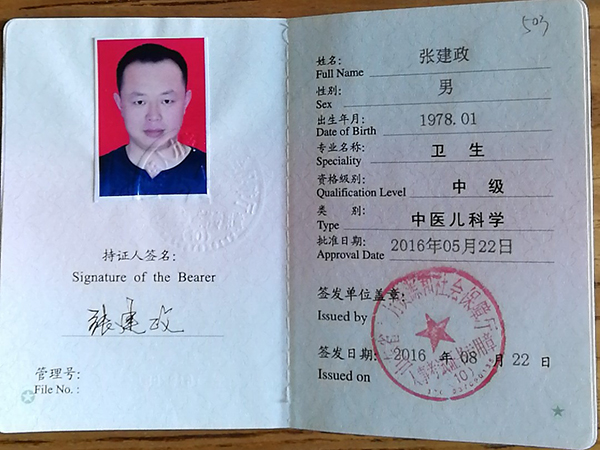 持证人签名:
Signature of the Bearer
张建政
管理号:
File No.:
503
姓名: 张建政
Full Name
性别: 男
Sex
出生年月: 1978.01
Date of Birth
专业名称: 卫生
Speciality
资格级别: 中级
Qualification Level
类 别: 中医儿科学
Type
批准日期: 2016年05月22日
Approval Date
签发单位盖章:
Issued by
签发日期: 2016 年 08 月 22 日
Issued on
力资源和社会保障厅